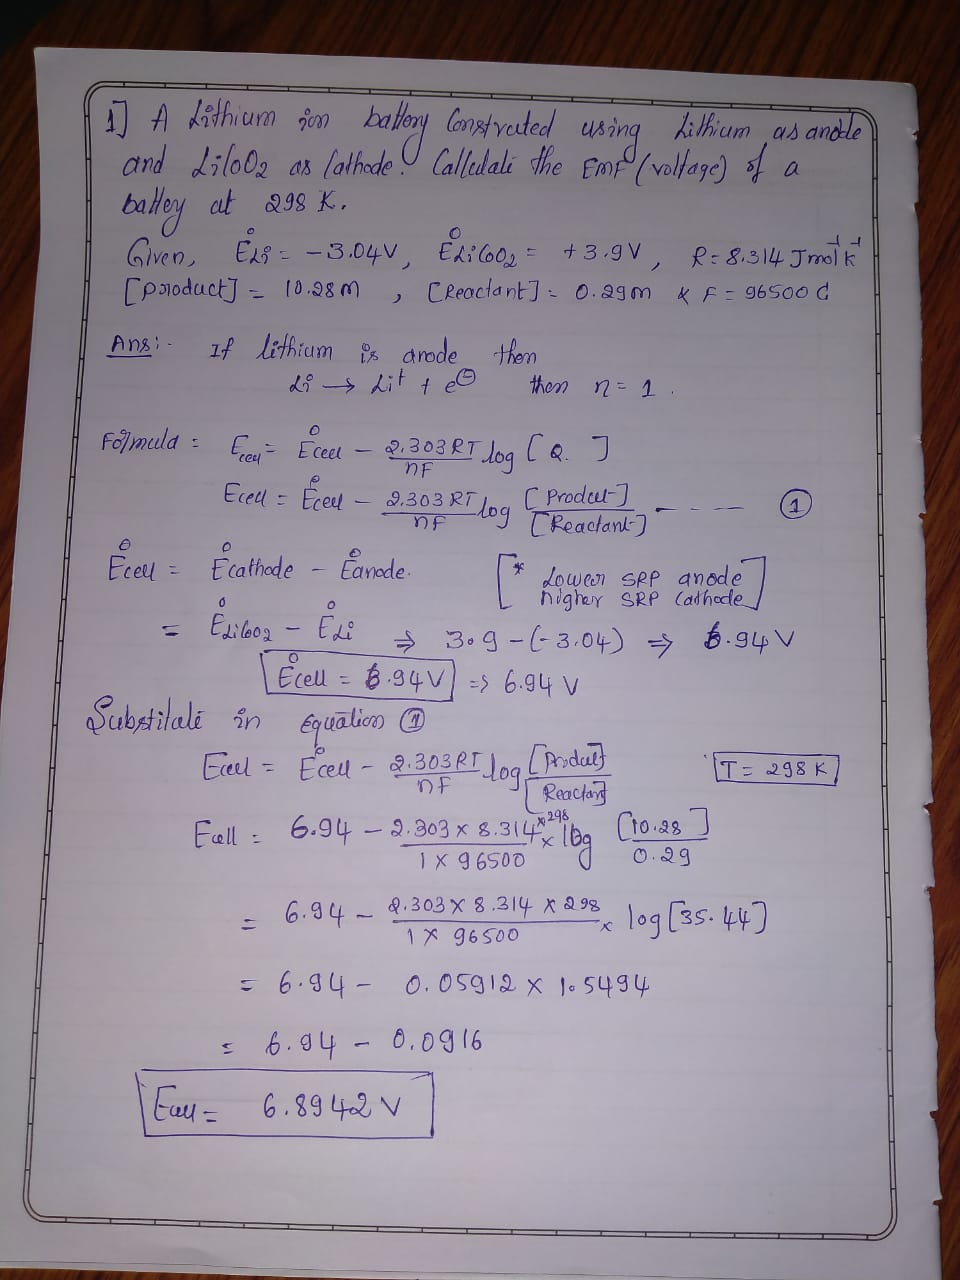 1] A Lithium ion battery Constructed using Lithium as anode
and LiCoO2 as Cathode. Calculate the EMF (voltage) of a
battery at 298 K.
Given, E°Li = -3.04V, E°LiCoO2 = +3.9V, R = 8.314 J mol⁻¹ K⁻¹
[product] = 10.28m, [Reactant] = 0.29m & F = 96500 C
Ans:- If lithium is anode then
Li → Li⁺ + e⊖ then n = 1.
Formula = Ecell = E°cell - 2.303RT/nF log [Q.]
Ecell = E°cell - 2.303RT/nF log [Product]/[Reactant] - - - - ①
E°cell = E°cathode - E°anode. [* Lower SRP anode
higher SRP Cathode]
= E°LiCoO2 - E°Li ⇒ 3.9-(-3.04) ⇒ 6.94 V
E°cell = 6.94V => 6.94 V
Substitute in equation ①
Ecell = E°cell - 2.303RT/nF log [Product]/[Reactant] T = 298 K
Ecell = 6.94 - 2.303 x 8.314 x 298/1 x 96500 x log [10.28]/0.29
= 6.94 - 2.303 x 8.314 x 298/1 x 96500 x log [35.44]
= 6.94 - 0.05912 x 1.5494
= 6.94 - 0.0916
Ecell = 6.8942 V